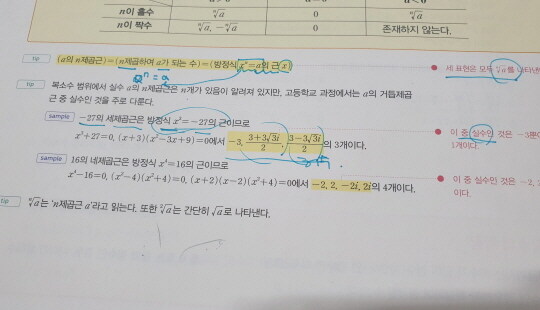 n이 홀수 ⁿ√a 0 ⁿ√a
n이 짝수 ⁿ√a, -ⁿ√a 0 존재하지 않는다.
tip (a의 n제곱근)=(n제곱하여 a가 되는 수)=(방정식 xⁿ=a의 근 x)
세 표현은 모두 ⁿ√a를 나타낸
xⁿ = a
tip 복소수 범위에서 실수 a의 n제곱근은 n개가 있음이 알려져 있지만, 고등학교 과정에서는 a의 거듭제곱
근 중 실수인 것을 주로 다룬다.
sample -27의 세제곱근은 방정식 x³=-27의 근이므로
x³+27=0, (x+3)(x²-3x+9)=0에서 -3, (3+3√3i)/2, (3-3√3i)/2의 3개이다.
이 중 실수인 것은 -3뿐
1개이다.
sample 16의 네제곱근은 방정식 x⁴=16의 근이므로
x⁴-16=0, (x²-4)(x²+4)=0, (x+2)(x-2)(x²+4)=0에서 -2, 2, -2i, 2i의 4개이다.
이 중 실수인 것은 -2,
이다.
tip ⁿ√a는 'n제곱근 a'라고 읽는다. 또한 ²√a는 간단히 √a로 나타낸다.